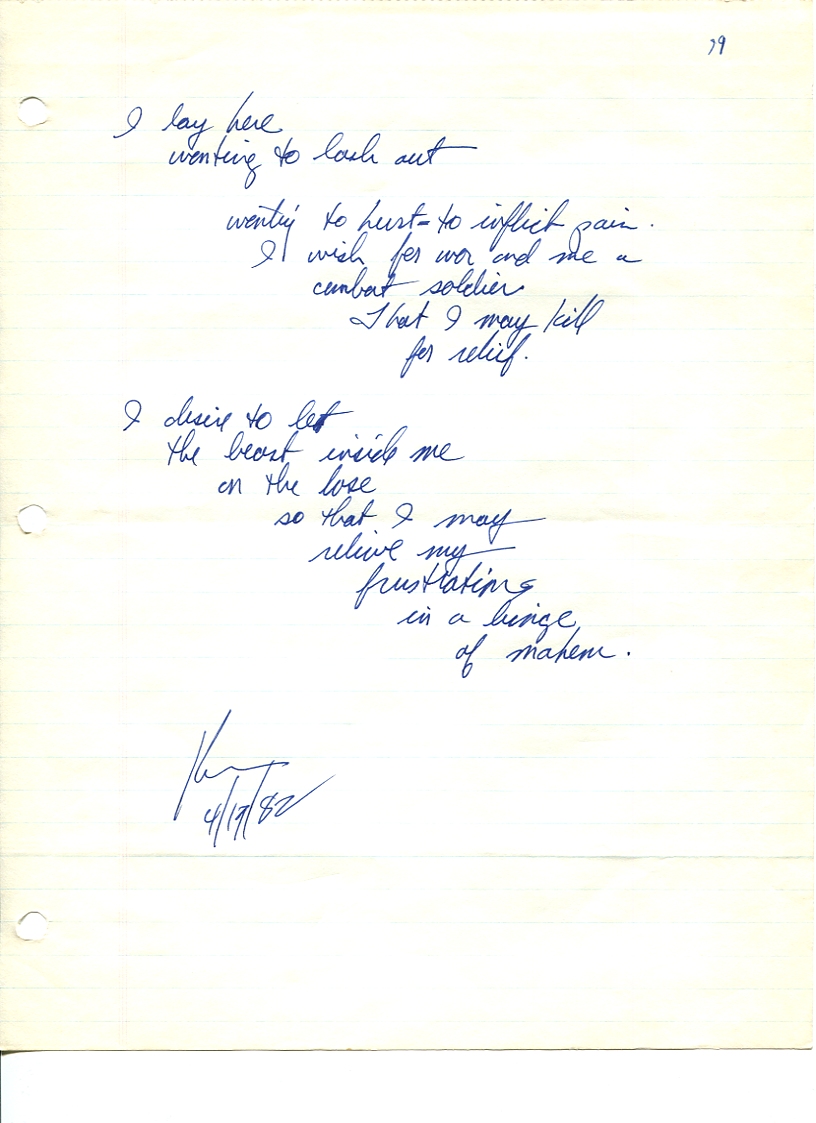 79
I lay here
wanting to lash out
wanting to hurt - to inflict pain.
I wish for war and me a
combat soldier
That I may kill
for relief.
I desire to let
the beast inside me
on the lose
so that I may
relive my
frustrations
in a binge
of mahem.
4/19/82